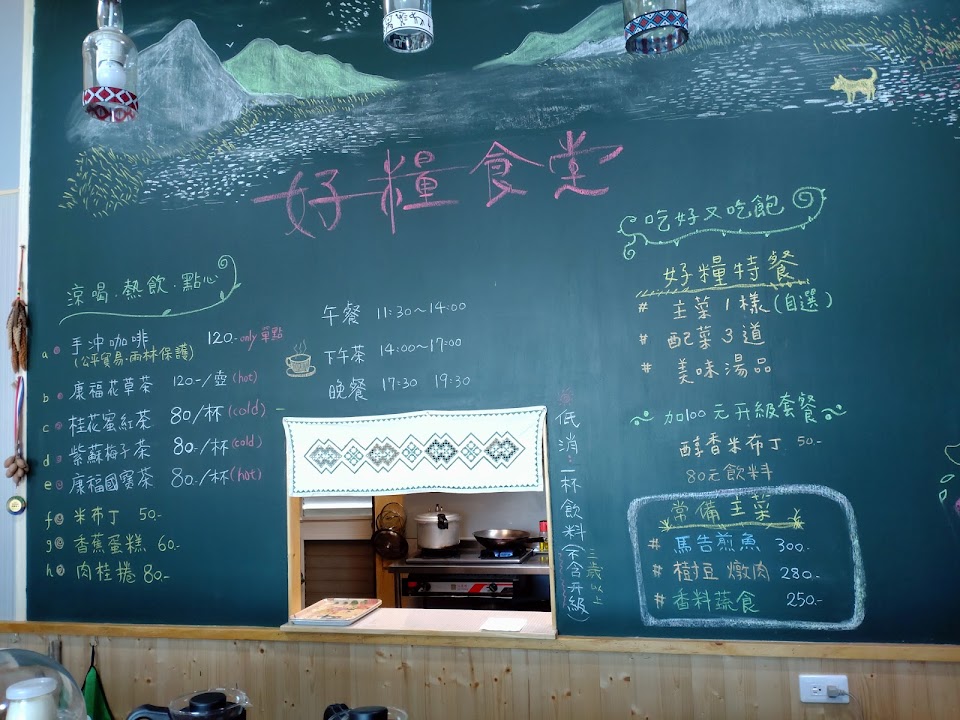 好糧食堂
涼喝.熱飲.點心
a 手沖咖啡 120.- only 單點
(公平貿易.雨林保護)
b 康福花草茶 120-/壺 (hot)
c 桂花蜜紅茶 80/杯 (cold)
d 紫蘇梅子茶 80/杯 (cold)
e 康福國寶茶 80/杯 (hot)
f 米布丁 50.-
g 香蕉蛋糕 60.-
h 肉桂捲 80.-
午餐 11:30~14:00
下午茶 14:00~17:00
晚餐 17:30 19:30
低消一杯飲料(不含升級)
三歲以上
吃好又吃飽
好糧特餐
# 主菜1樣(自選)
# 配菜3道
# 美味湯品
加100元升級套餐
醇香米布丁 50.-
80元飲料
常備主菜
# 馬告煎魚 300.-
# 樹豆燉肉 280.-
# 香料蔬食 250.-